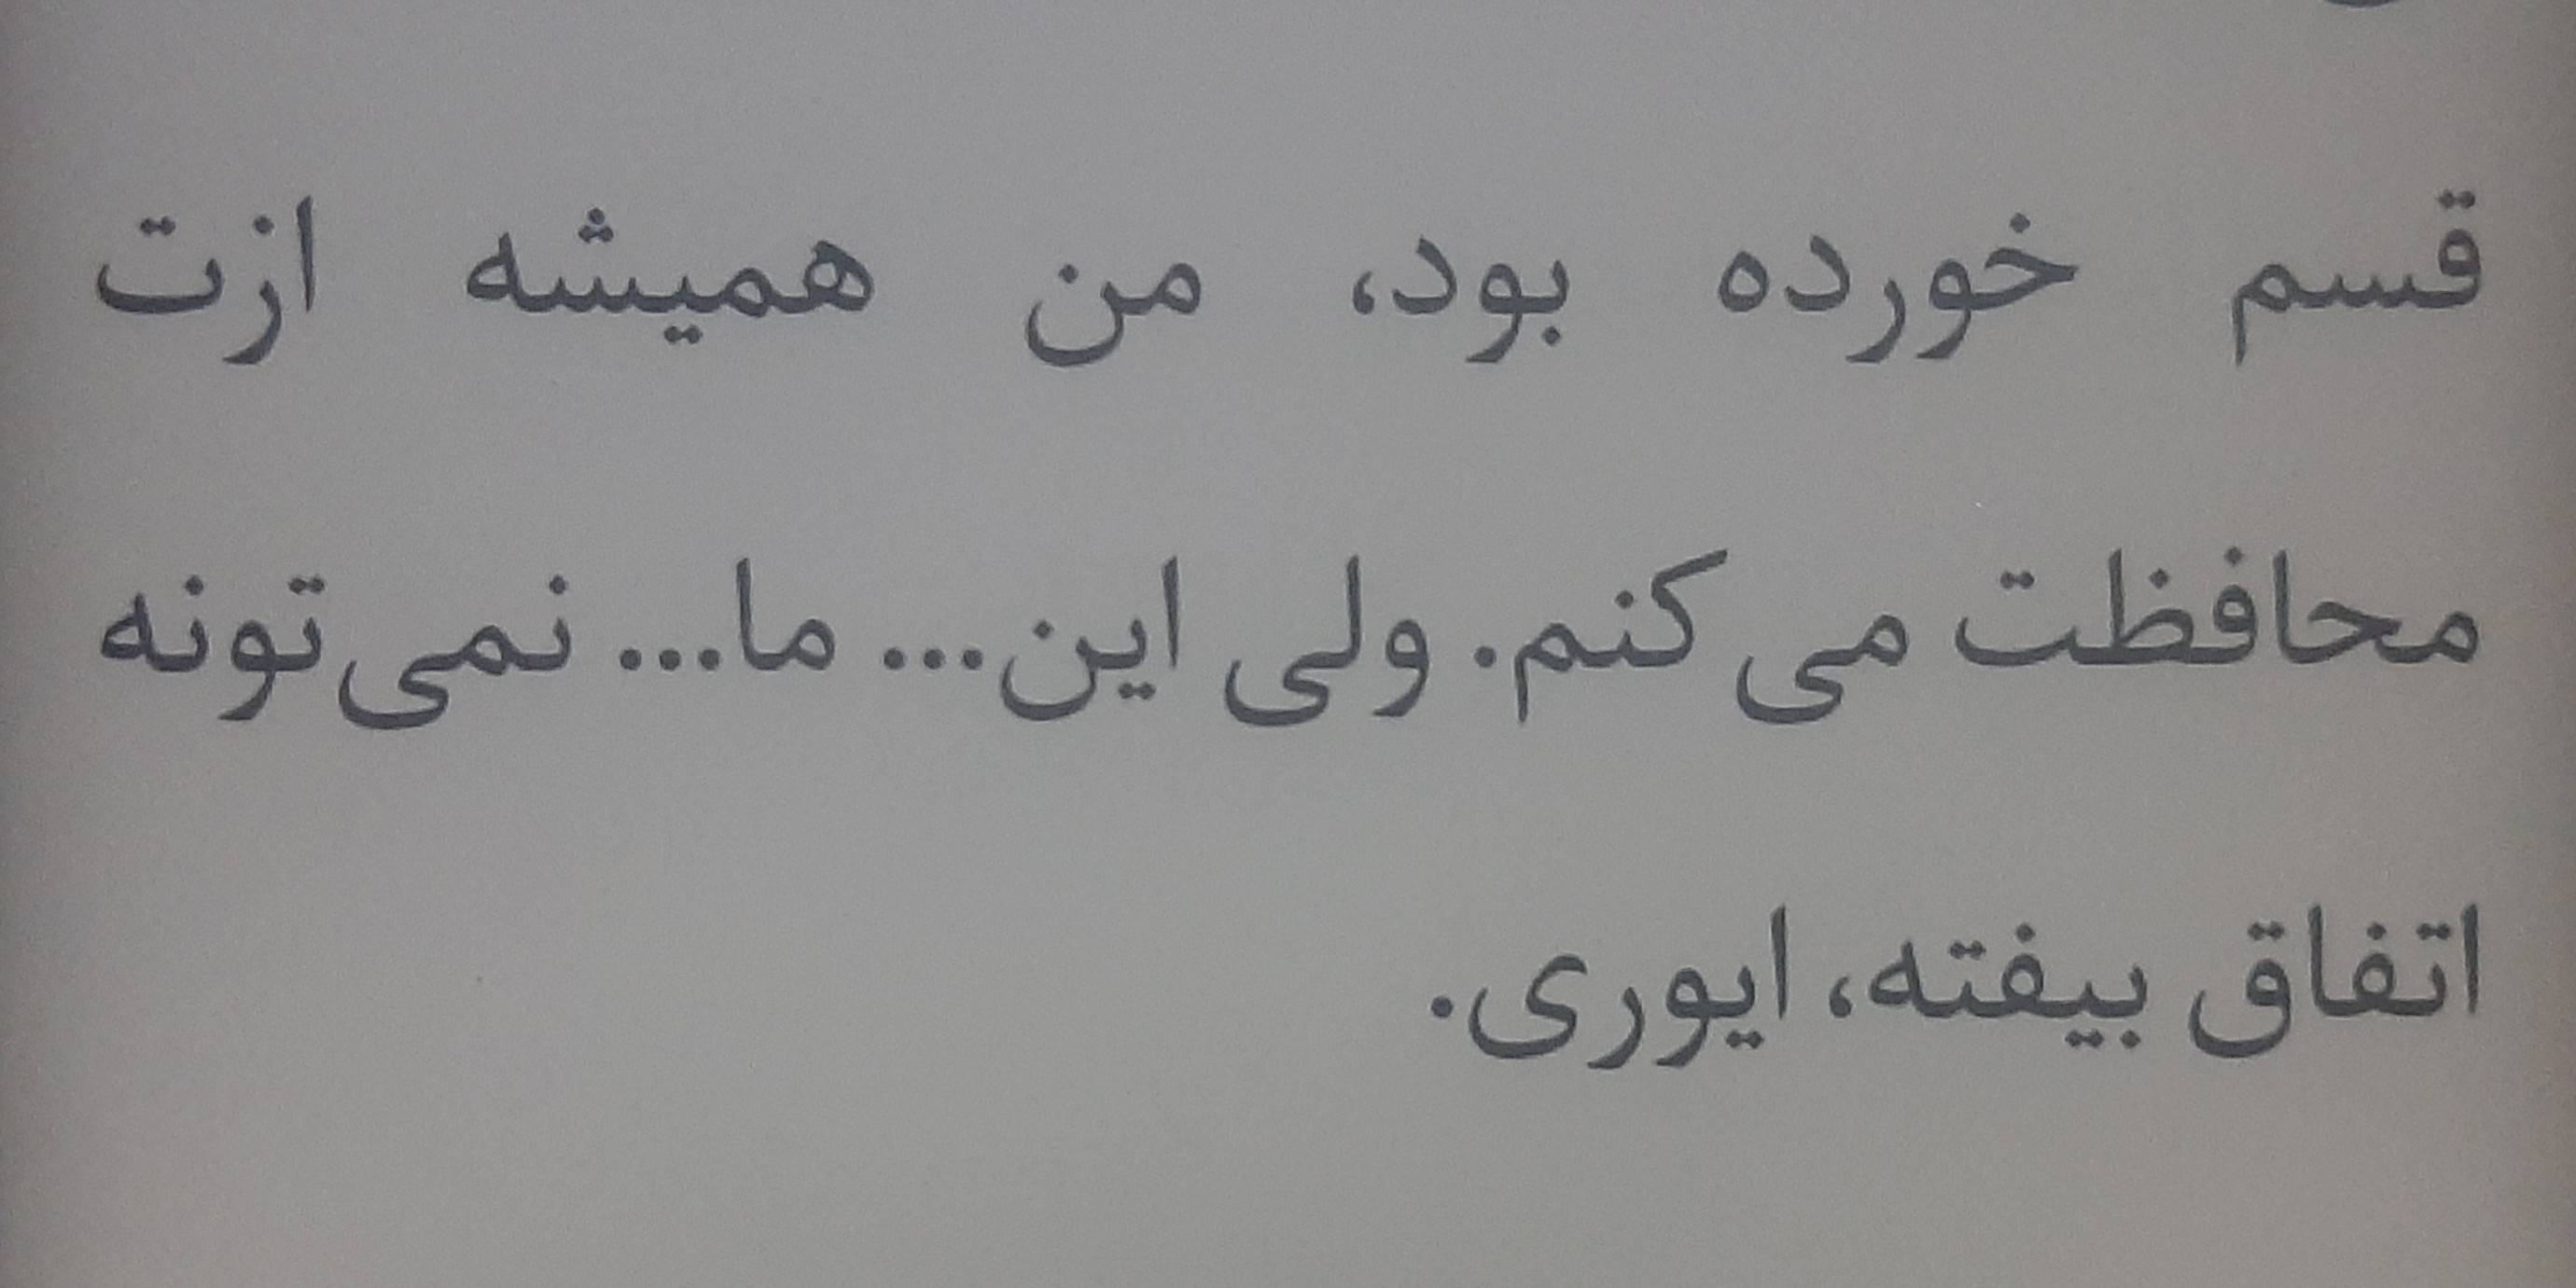 قسم خورده بود، من همیشه ازت
محافظت می‌کنم. ولی این... ما... نمی‌تونه
اتفاق بیفته، ایوری.